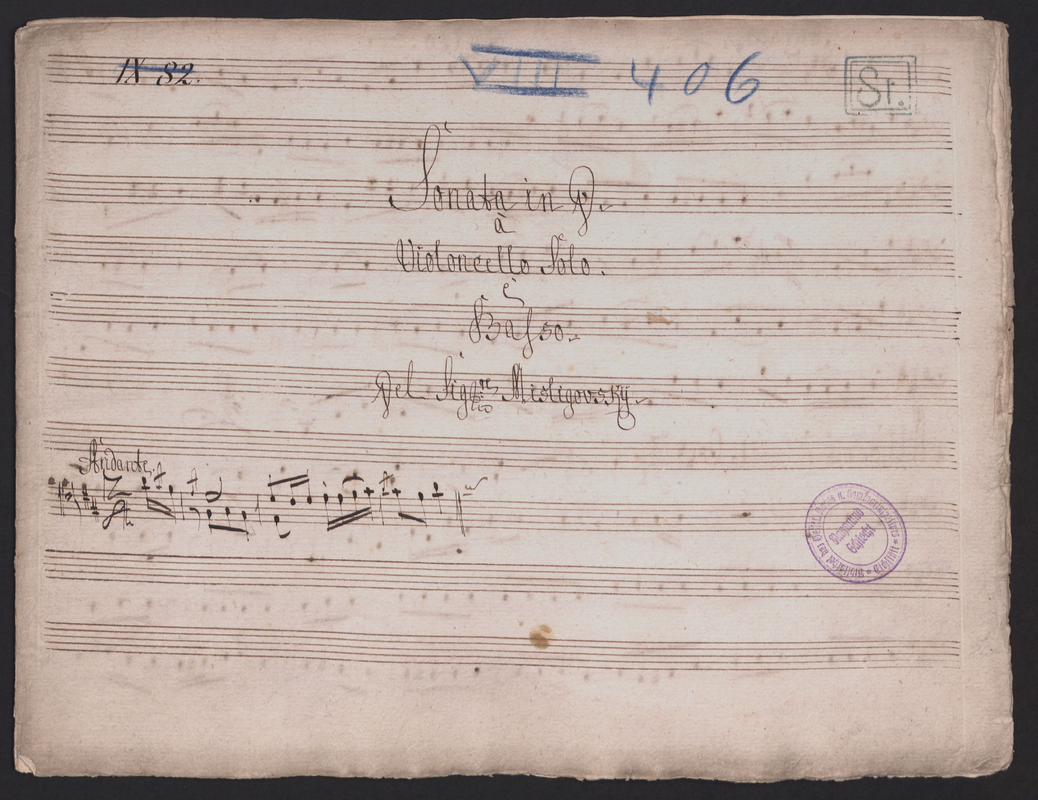 IX 82.
VIII 406
St.
Sonata in D.
à
Violoncello Solo.
è
Basso.
Del Sig:re Misligovsky.
Andante.